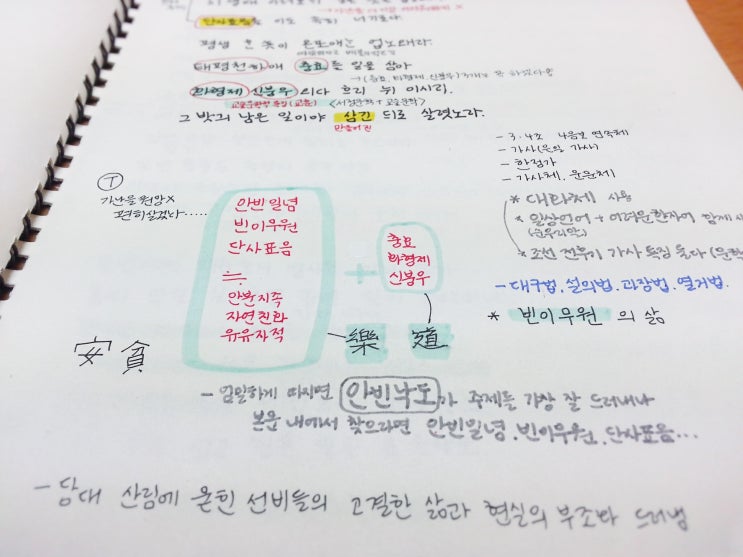 단사표음을 이도 족히 너기로라.
평생 흔 뜻이 온포애는 업노왜라.
태평천하애 충효를 일을 삼아
→(충효, 화형제, 신붕우) 3개
화형제 신붕우 외다 흐리 뉘 이시리.
그 밧긔 남은 일이야 삼긴 되로 살렷노라.
만들어진
- 3·4조 4음보 연속체
- 가사(은일 가사)
- 한정가
- 가사체, 운문체
* 대화체 사용
* 일상언어 + 어려운한자어 함께
* 조선 전후기 가사 특징 둘다
- 대구법, 설의법, 과장법, 열거법
* 빈이무원의 삶
T
가난을 원망X
편히살겠다.....
안빈일념
빈이무원
단사표음
≒
안분지족
자연친화
유유자적
+
충효
화형제
신붕우
安貧 樂 道
- 엄밀하게 따지면 안빈낙도가 주제를 가장 잘 드러내나
본문 내에서 찾으라면 안빈일념, 빈이무원, 단사표음...
- 당대 산림에 묻힌 선비들의 고결한 삶과 현실의 부조화 드러냄